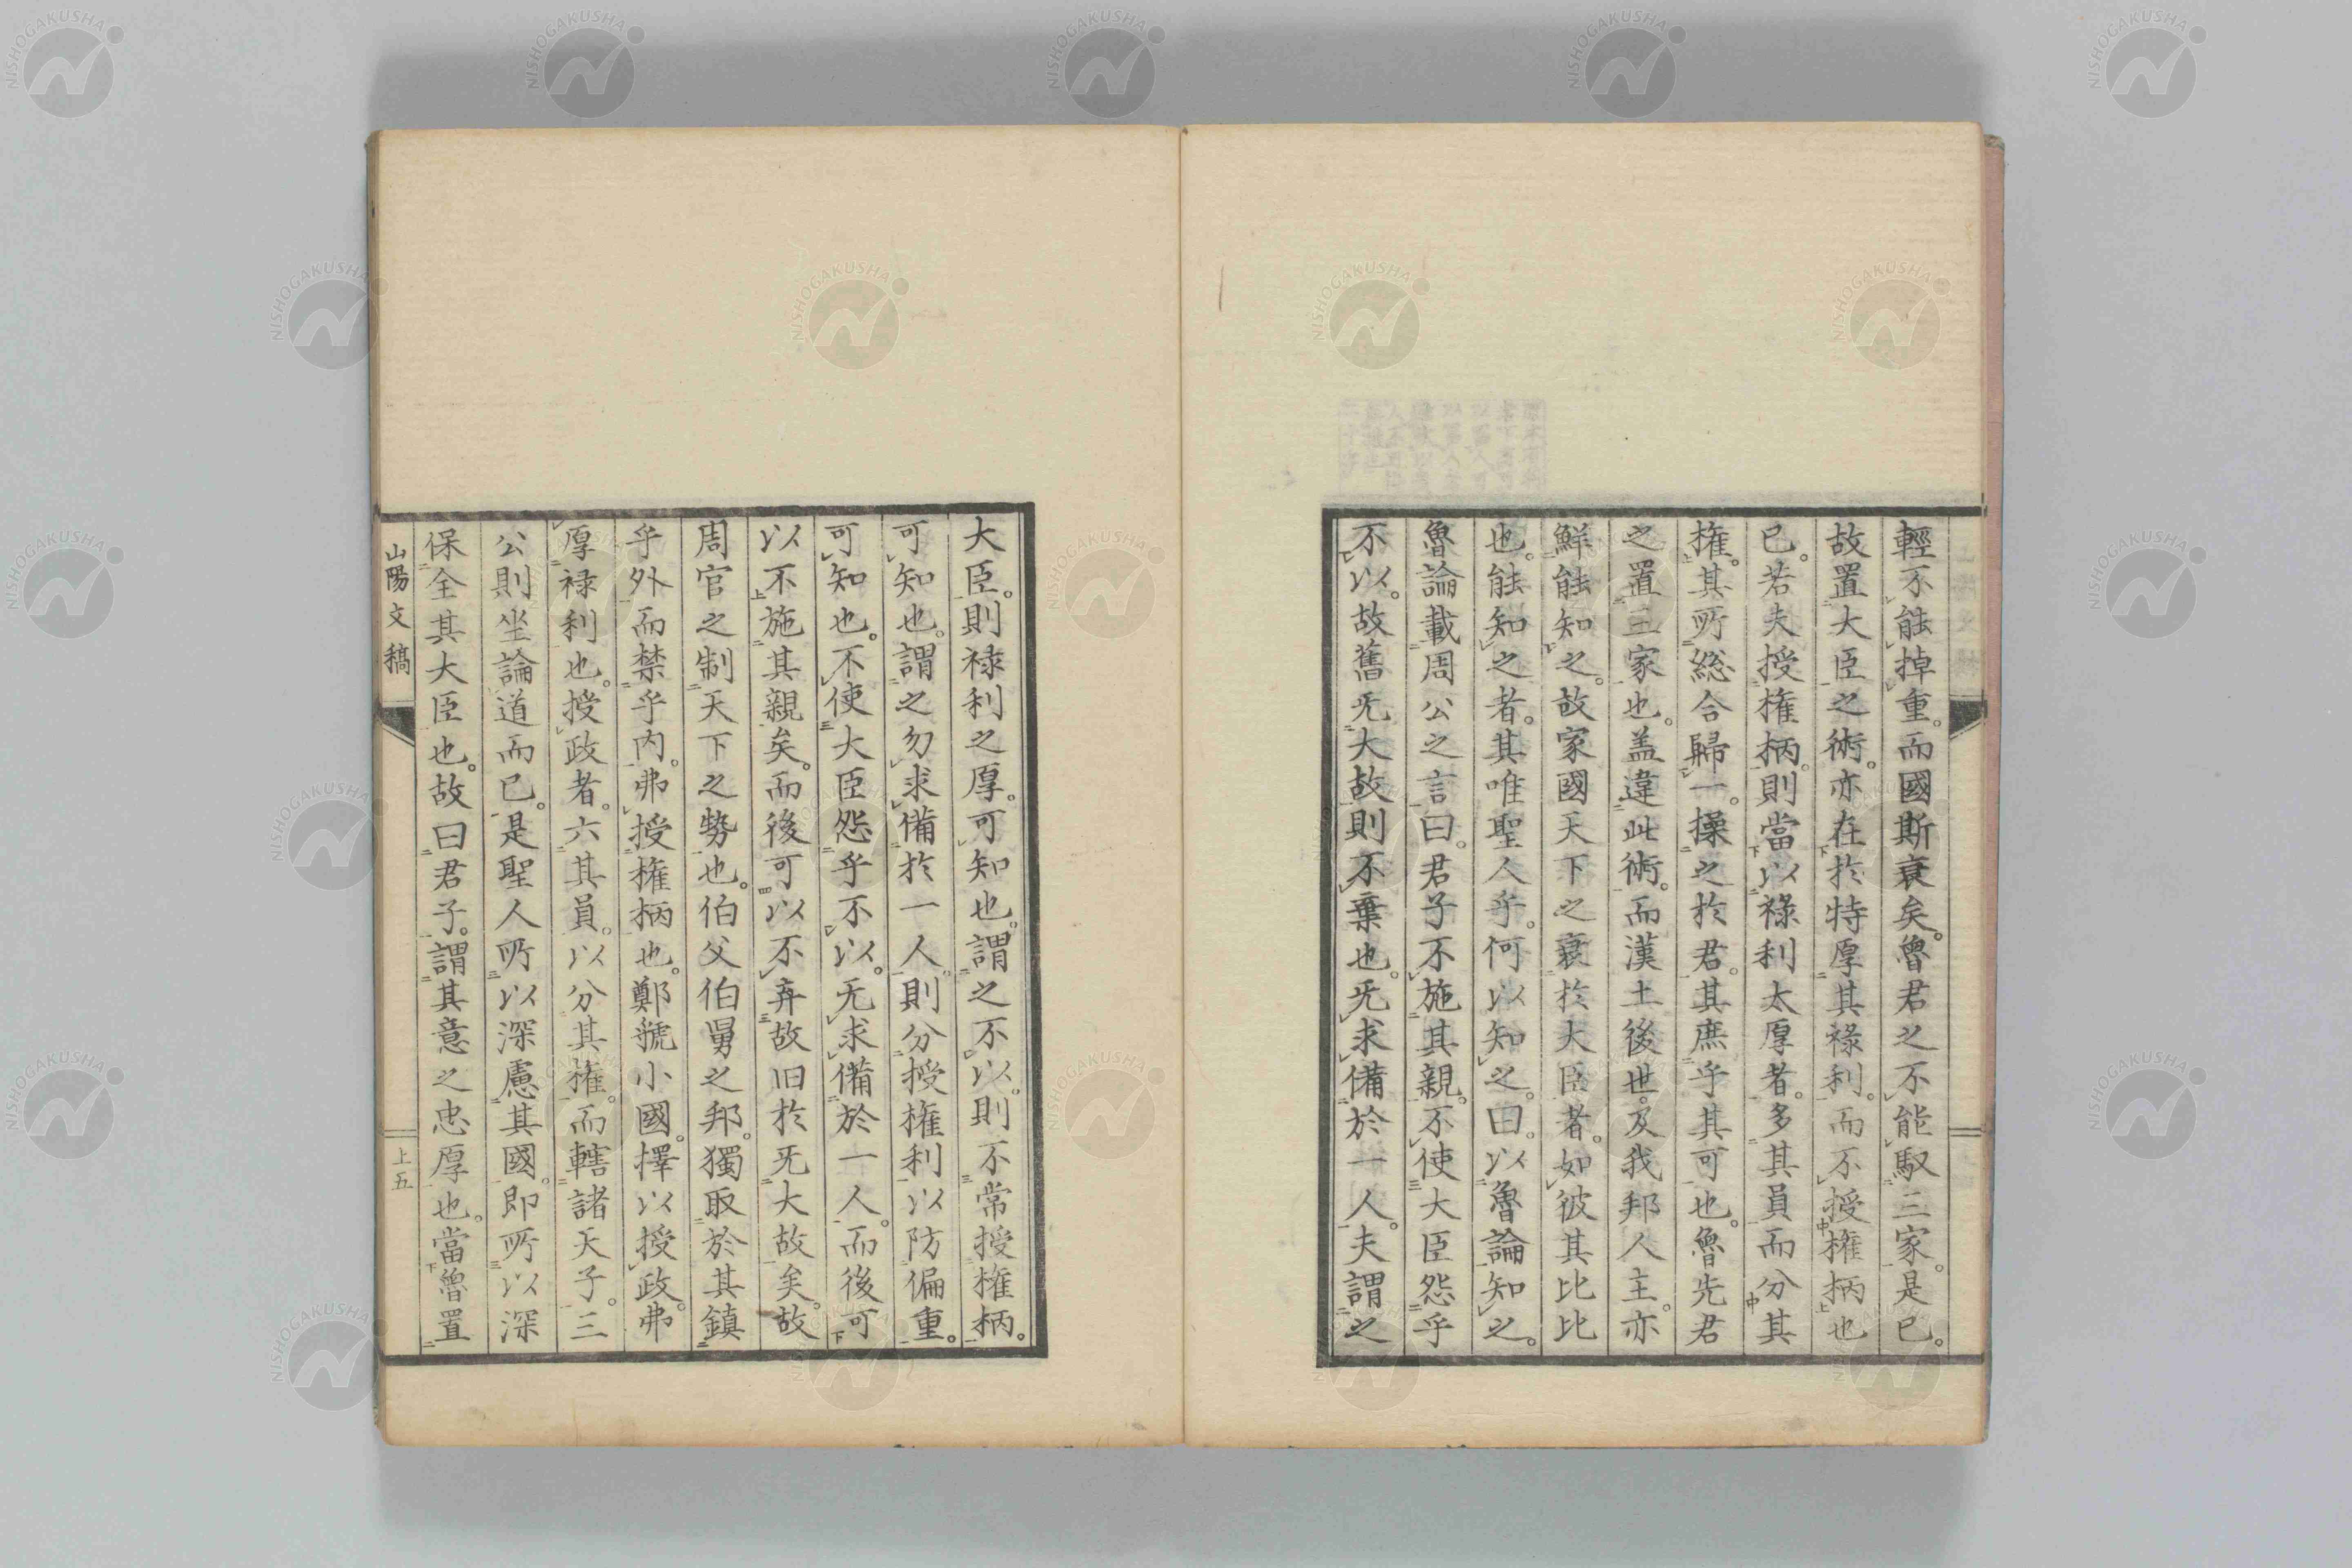 輕不能掉重。而國斯衰矣。魯君之不能馭三家。是已。
故置大臣之術。亦在於特厚其祿利。而不授權柄也
已。若夫授權柄。則當以祿利太厚者。多其員而分其
權。其所総合歸一。操之於君。其庶乎其可也。魯先君
之置三家也。盖違此術。而漢土後世。及我邦人主。亦
鮮能知之。故家國天下之衰於大臣者。如彼其比比
也。能知之者。其唯聖人乎。何以知之。曰。以魯論知之。
魯論載周公之言曰。君子不施其親。不使大臣怨乎
不以。故舊无大故則不棄也。无求備於一人。夫謂之
大臣。則禄利之厚。可知也。謂之不以。則不常授権柄。
可知也。謂之勿求備於一人。則分授権利以防偏重。
可知也。不使大臣怨乎不以。无求備於一人。而後可
以不施其親矣。而後可以不弃故旧於无大故矣。故
周官之制天下之勢也。伯父伯舅之邦。獨取於其鎮
乎外而禁乎内。弗授権柄也。鄭虢小國。擇以授政。弗
厚禄利也。授政者。六其員。以分其権。而轄諸天子。三
公則坐論道而已。是聖人所以深慮其國。即所以深
保全其大臣也。故曰君子。謂其意之忠厚也。當魯置
山陽文稿
上五
NISHOGAKUSHA